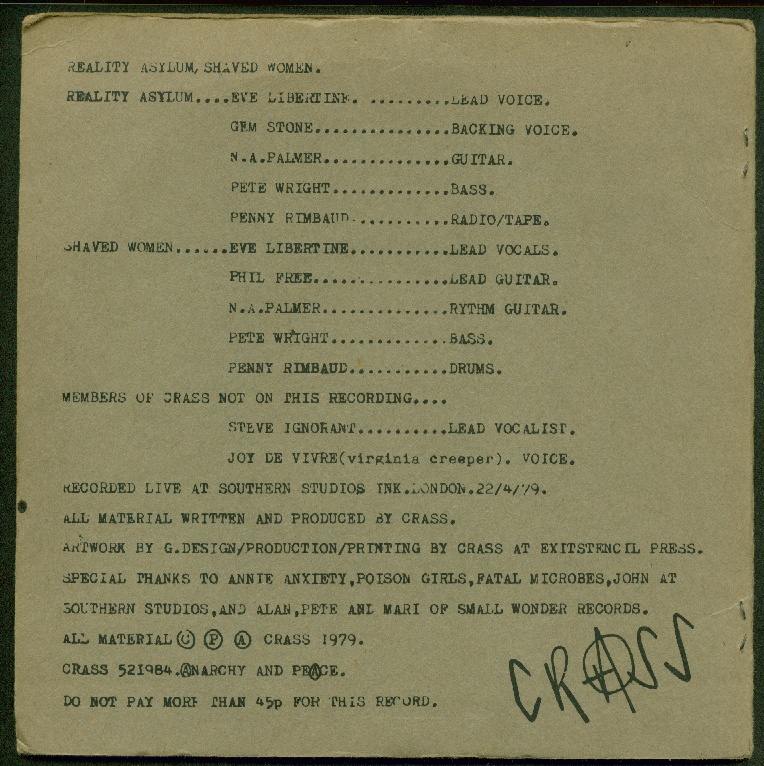 REALITY ASYLUM, SHAVED WOMEN.
REALITY ASYLUM....EVE LIBERTINE. .........LEAD VOICE.
GEM STONE..............BACKING VOICE.
N.A.PALMER.............GUITAR.
PETE WRIGHT............BASS.
PENNY RIMBAUD..........RADIO/TAPE.
SHAVED WOMEN......EVE LIBERTINE..........LEAD VOCALS.
PHIL FREE..............LEAD GUITAR.
N.A.PALMER.............RYTHM GUITAR.
PETE WRIGHT............BASS.
PENNY RIMBAUD..........DRUMS.
MEMBERS OF CRASS NOT ON THIS RECORDING....
STEVE IGNORANT.........LEAD VOCALIST.
JOY DE VIVRE(virginia creeper). VOICE.
RECORDED LIVE AT SOUTHERN STUDIOS INK.LONDON.22/4/79.
ALL MATERIAL WRITTEN AND PRODUCED BY CRASS.
ARTWORK BY G.DESIGN/PRODUCTION/PRINTING BY CRASS AT EXITSTENCIL PRESS.
SPECIAL THANKS TO ANNIE ANXIETY,POISON GIRLS,FATAL MICROBES,JOHN AT
SOUTHERN STUDIOS,AND ALAN,PETE AND MARI OF SMALL WONDER RECORDS.
ALL MATERIAL Ⓒ Ⓟ Ⓐ CRASS 1979.
CRASS 521984.ⒶNARCHY AND PEⒶCE.
DO NOT PAY MORE THAN 45p FOR THIS RECORD.
CRⒶSS